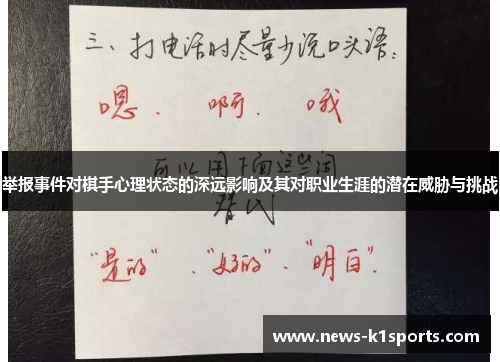 三、打电话时尽量少说口头语：
嗯． 啊． 哦
可以用下面这些词
举报事件对棋手心理状态的深远影响及其对职业生涯的潜在威胁与挑战
替代
“是的”．“好的”、“明白”．
www.news-k1sports.com